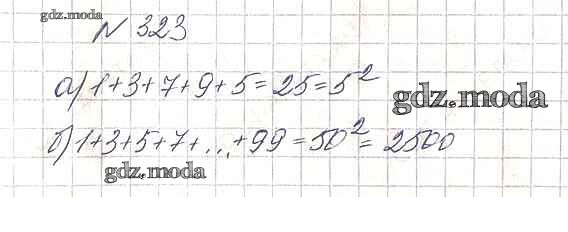 gdz.moda
№ 323
а) 1+3+7+9+5=25=5²
gdz.moda
б) 1+3+5+7+...+99=50²=2500
gdz.moda